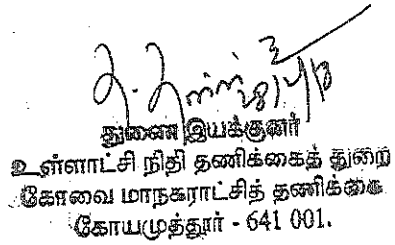 துணை இயக்குனர்
உள்ளாட்சி நிதி தணிக்கைத் துறை
கோவை மாநகராட்சித் தணிக்கை
கோயமுத்தூர் - 641 001.